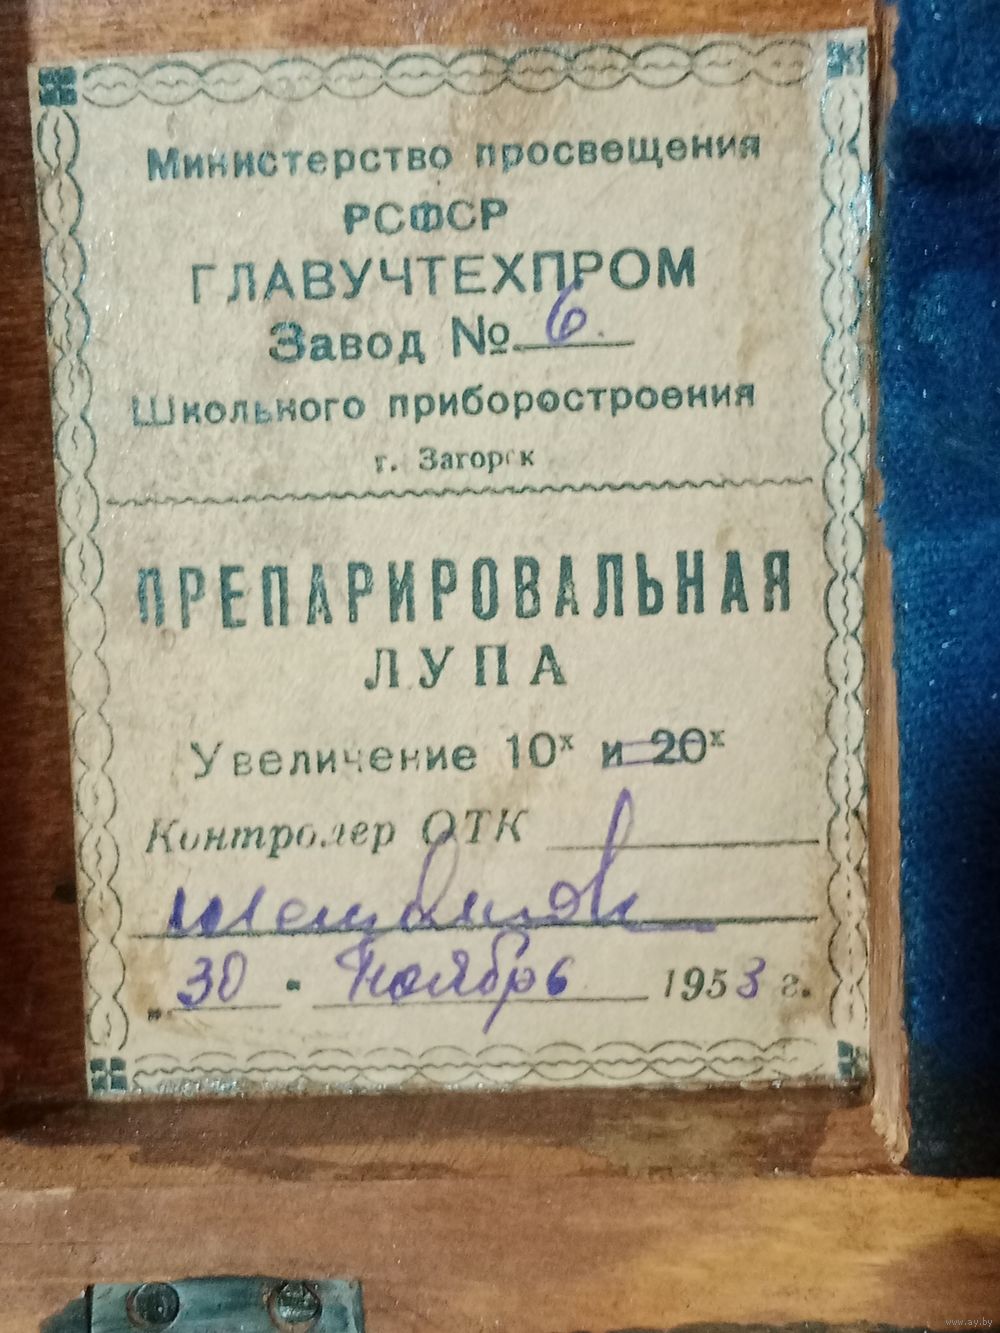 Министерство просвещения
РСФСР
ГЛАВУЧТЕХПРОМ
Завод № 6.
Школьного приборостроения
г. Загорск
ПРЕПАРИРОВАЛЬНАЯ
ЛУПА
Увеличение 10х и 20х
Контролер ОТК
30 - Ноябрь 1953 г.
www.ay.by